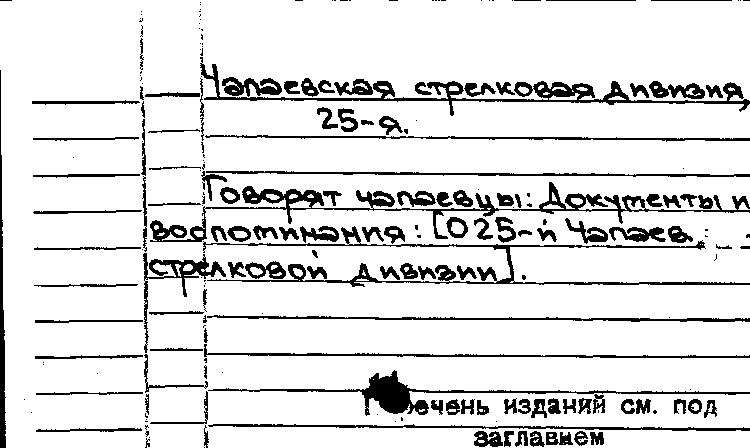 Чапаевская стрелковая дивизия,
25-я.
Говорят чапаевцы: Документы и
воспоминания: [О 25-й Чапаев.
стрелковой дивизии].
изданий см. под
заглавием